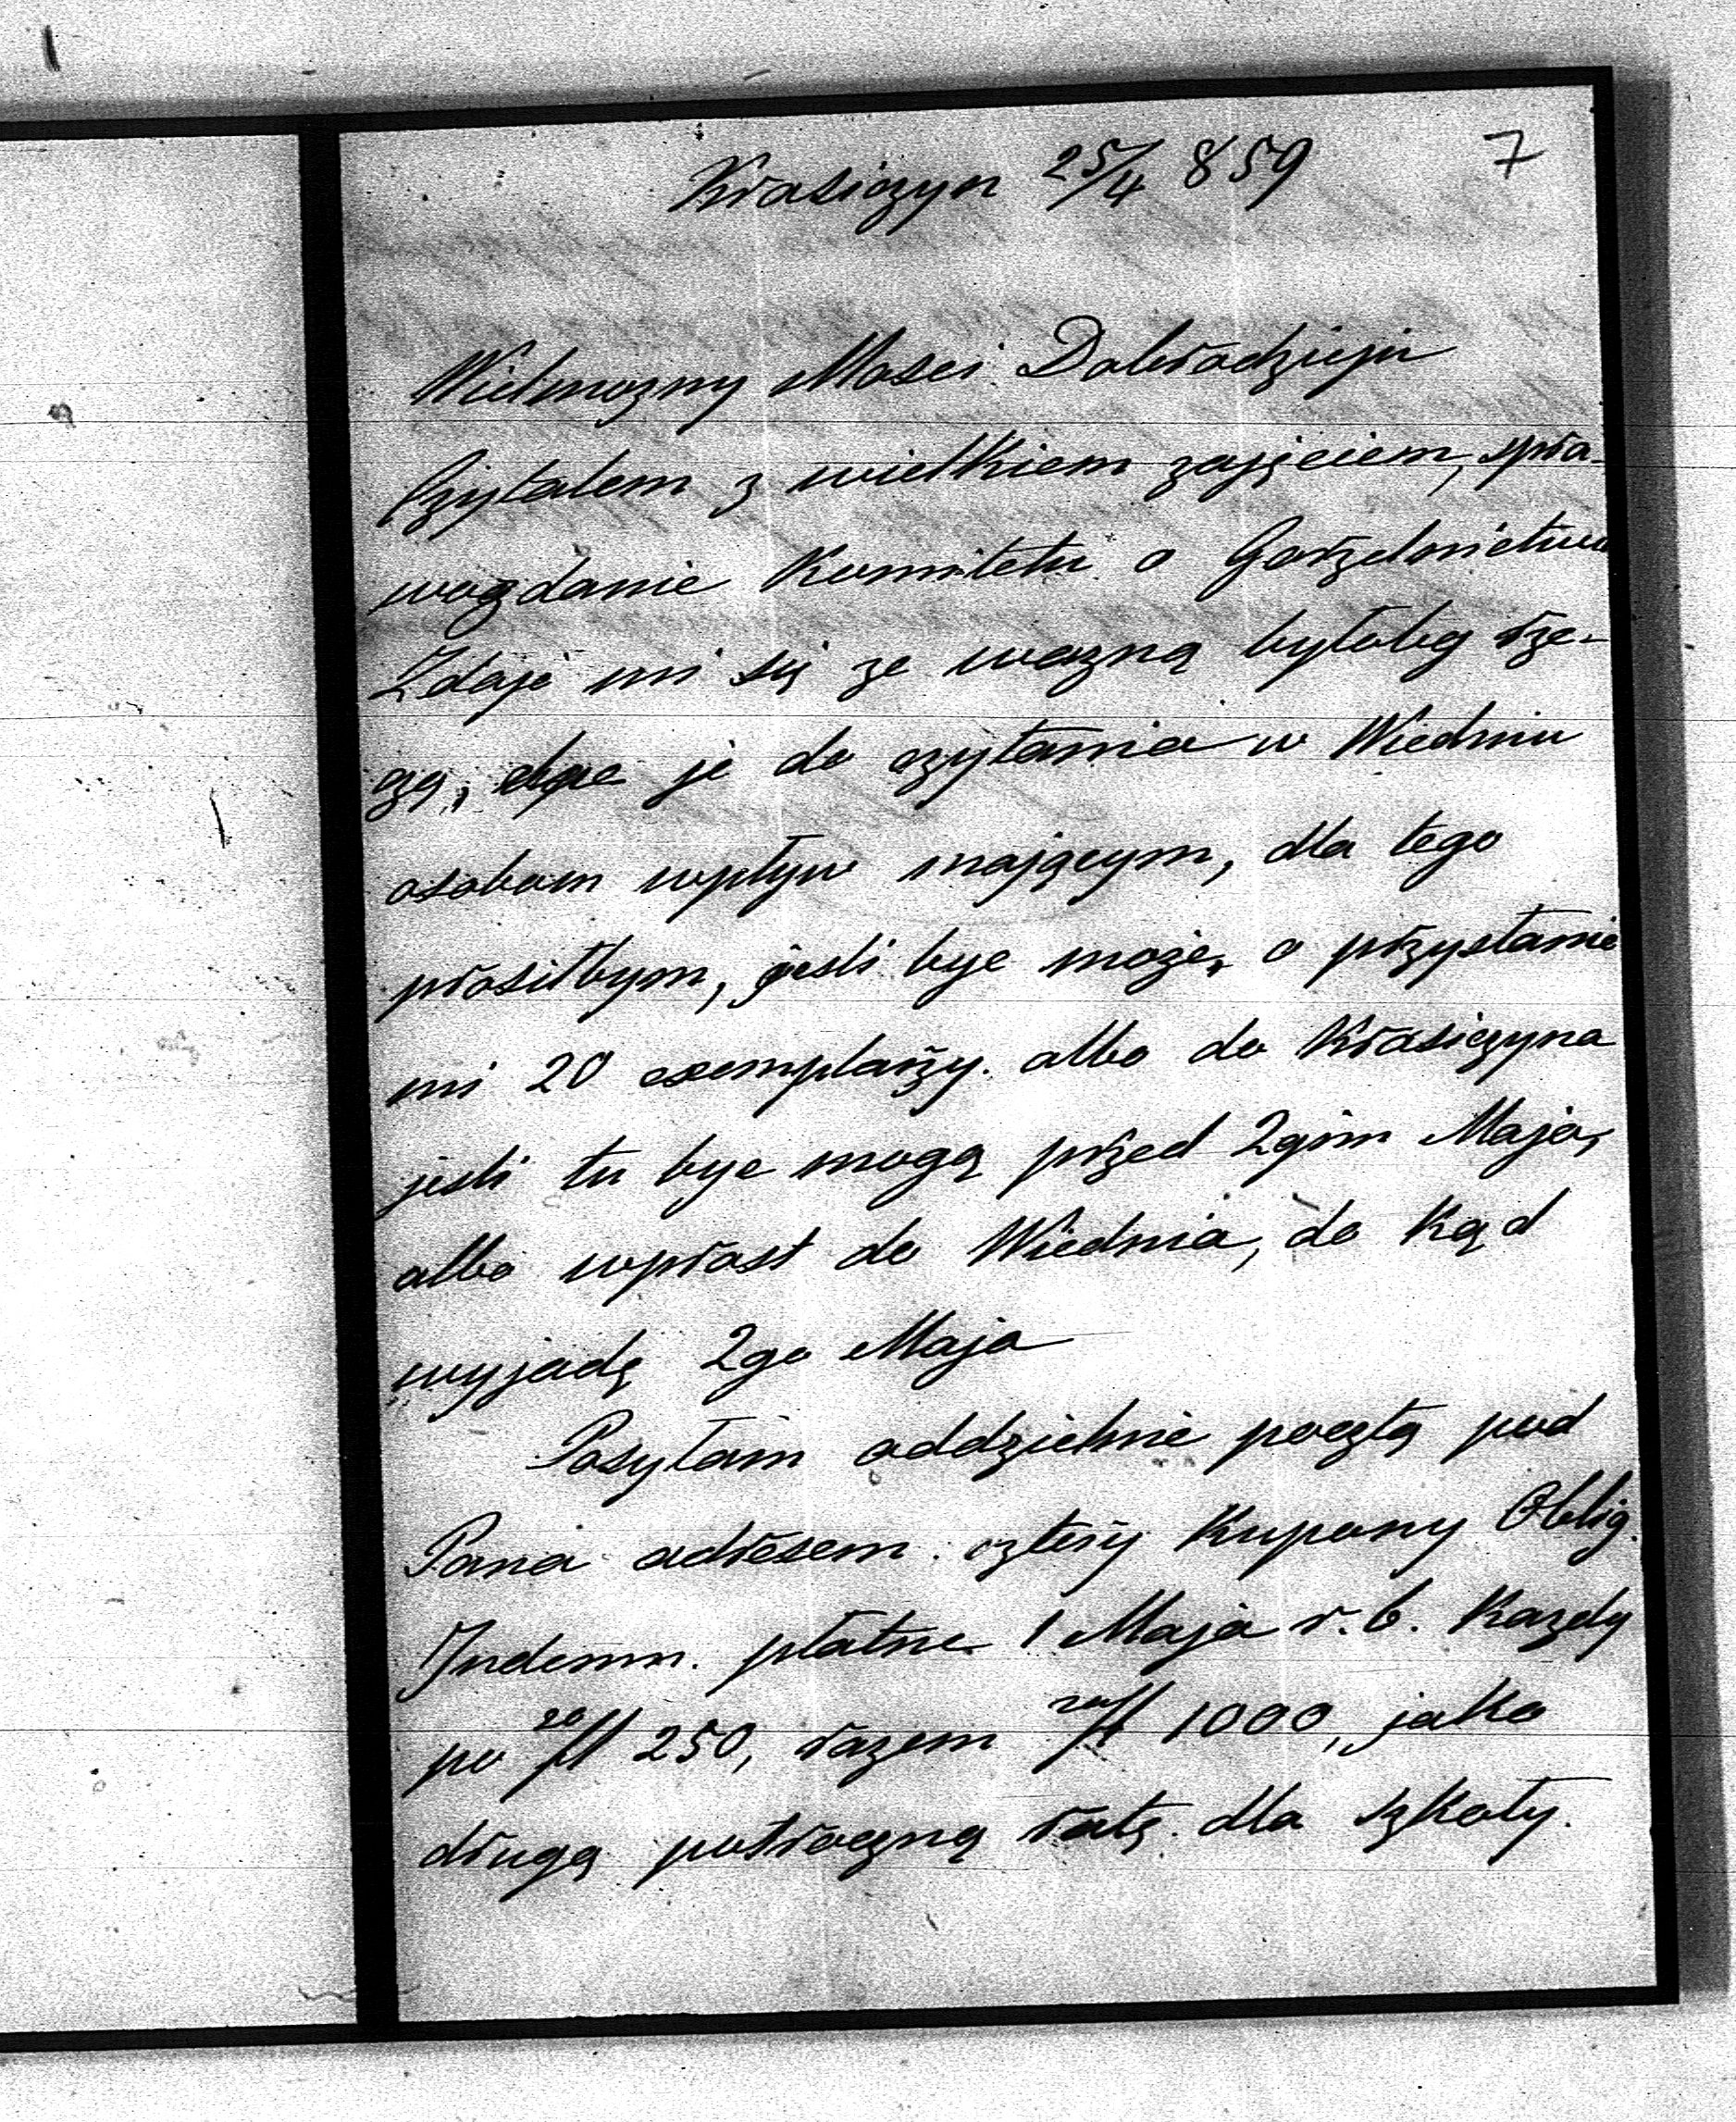 7
Krasiczyn 25/4 859
Wielmozny Mosci Dobrodzieju
Czytalem z wielkiem zajęciem, spra-
wozdanie Komitetu o Gorzelnictwu
Zdaje mi się ze wazną byłoby rze-
czą, dac je do czytania w Wiedniu
osobom wpływ mającym, dla tego
prosiłbym, jesli byc może, o przysłanie
mi 20 exemplarzy. albo do Krasiczyna
jesli tu byc mogą przed 2gim Maja,
albo wprost do Wiednia, do kąd
wyjadę 2go Maja
Posyłam oddzielnie pocztą pod
Pana adresem cztery Kupony Oblig.
Indemn. płatne 1 Maja r. b. Kazdy
po fl 250, razem fl 1000, jako
drugą połroczną ratę dla szkoły.